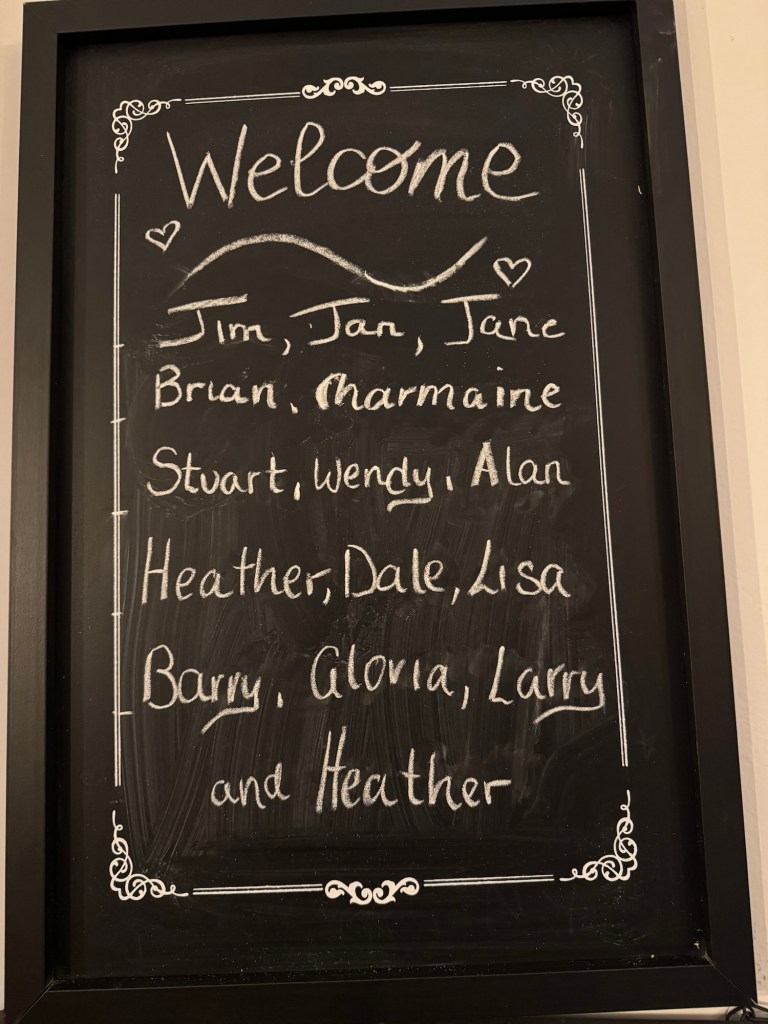 Welcome
Jim, Jan, Jane
Brian, Charmaine
Stuart, Wendy, Alan
Heather, Dale, Lisa
Barry, Gloria, Larry
and Heather